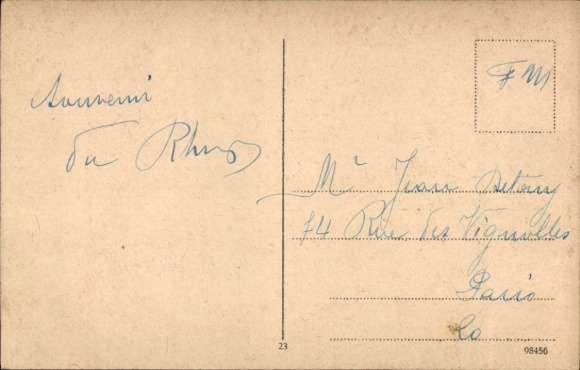 Souvenir
du Rhin
FM
Mr Jean
74 Rue des Vignolles
Paris
20
23
98456